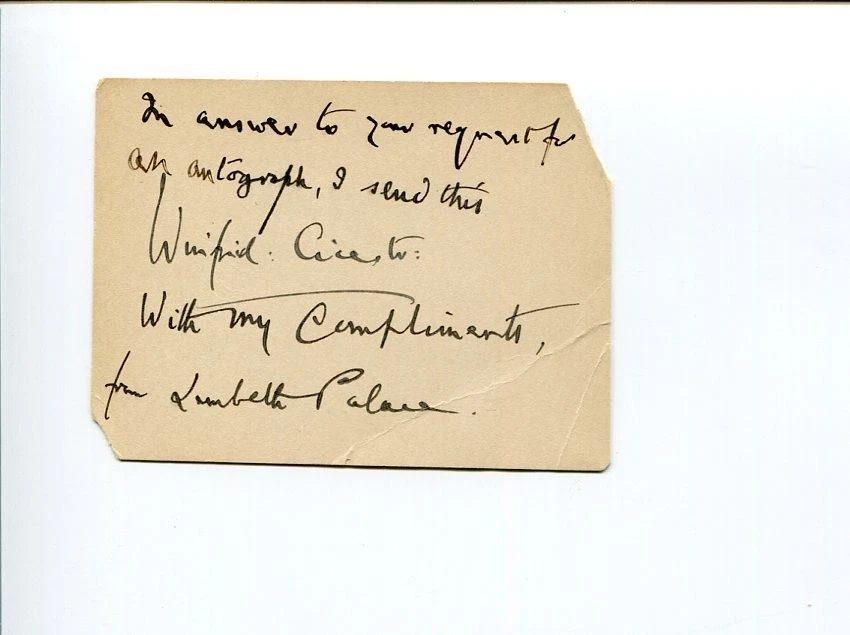 In answer to your request for
an autograph, I send this
Winfrid: Cicestr:
With my Compliments,
from Lambeth Palace.